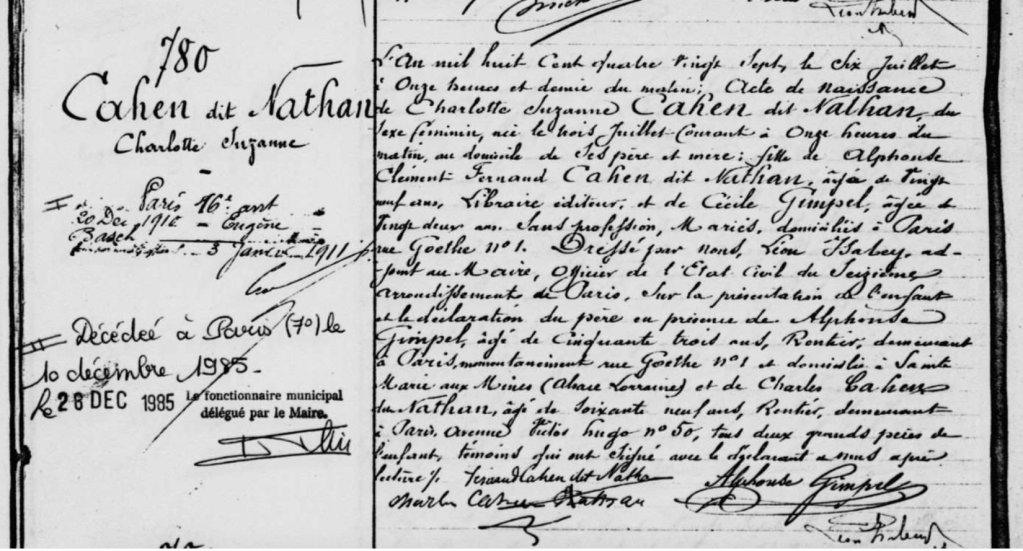 780
Cahen dit Nathan
Charlotte Suzanne
I
Paris 16e arrt
20 Dec 1910 - Eugène
Basch
3 Janvier 1911
II Décédée à Paris (7e) le
10 décembre 1985-
le 28 DEC 1985 Le fonctionnaire municipal
délégué par le Maire.
L'An mil huit Cent quatre Vingt Sept, le Six Juillet
à Onze heures et demie du matin; Acte de naissance
de Charlotte Suzanne Cahen dit Nathan, du
Sexe féminin, née le trois Juillet Courant à Onze heures du
matin, au domicile de Ses père et mère; fille de Alphonse
Clément Fernand Cahen dit Nathan, âgé de Vingt
neuf ans, Libraire éditeur, et de Cécile Gimpel, âgée de
Vingt deux ans, Sans profession, Mariés, domiciliés à Paris
rue Goethe no 1. Dressé par nous, Léon Isabey, ad-
joint au Maire, Officier de l'Etat Civil du Seizième
arrondissement de Paris, Sur la présentation de l'enfant
et la déclaration du père en présence de Alphonse
Gimpel, âgé de Cinquante trois ans, Rentier, demeurant
à Paris, momentanément rue Goethe no 1 et domicilié à Sainte
Marie aux Mines (Alsace Lorraine) et de Charles Cahen
dit Nathan, âgé de Soixante neuf ans, Rentier, demeurant
à Paris, Avenue Victor Hugo no 50, tous deux grands pères de
l'enfant, témoins qui ont signé avec le déclarant et nous après
lecture /. Fernand Cahen dit Nathan
Alphonse Gimpel
Charles Cahen Nathan